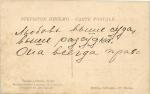 ОТКРЫТОЕ ПИСЬМО. — CARTE POSTALE.
Любовь выше суда,
выше рассудка.
Она всегда права.